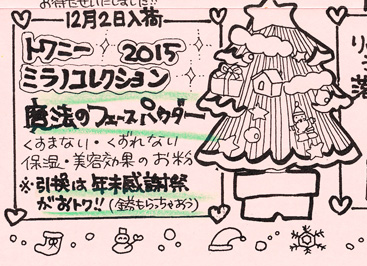 お待たせいたしました!!
12月2日入荷
トワニー 2015
ミラノコレクション
魔法のフェースパウダー
くすまない・くずれない
保湿・美容効果のお粉
※引換は年末感謝祭
がおトク!! (金券もらっちゃおう)